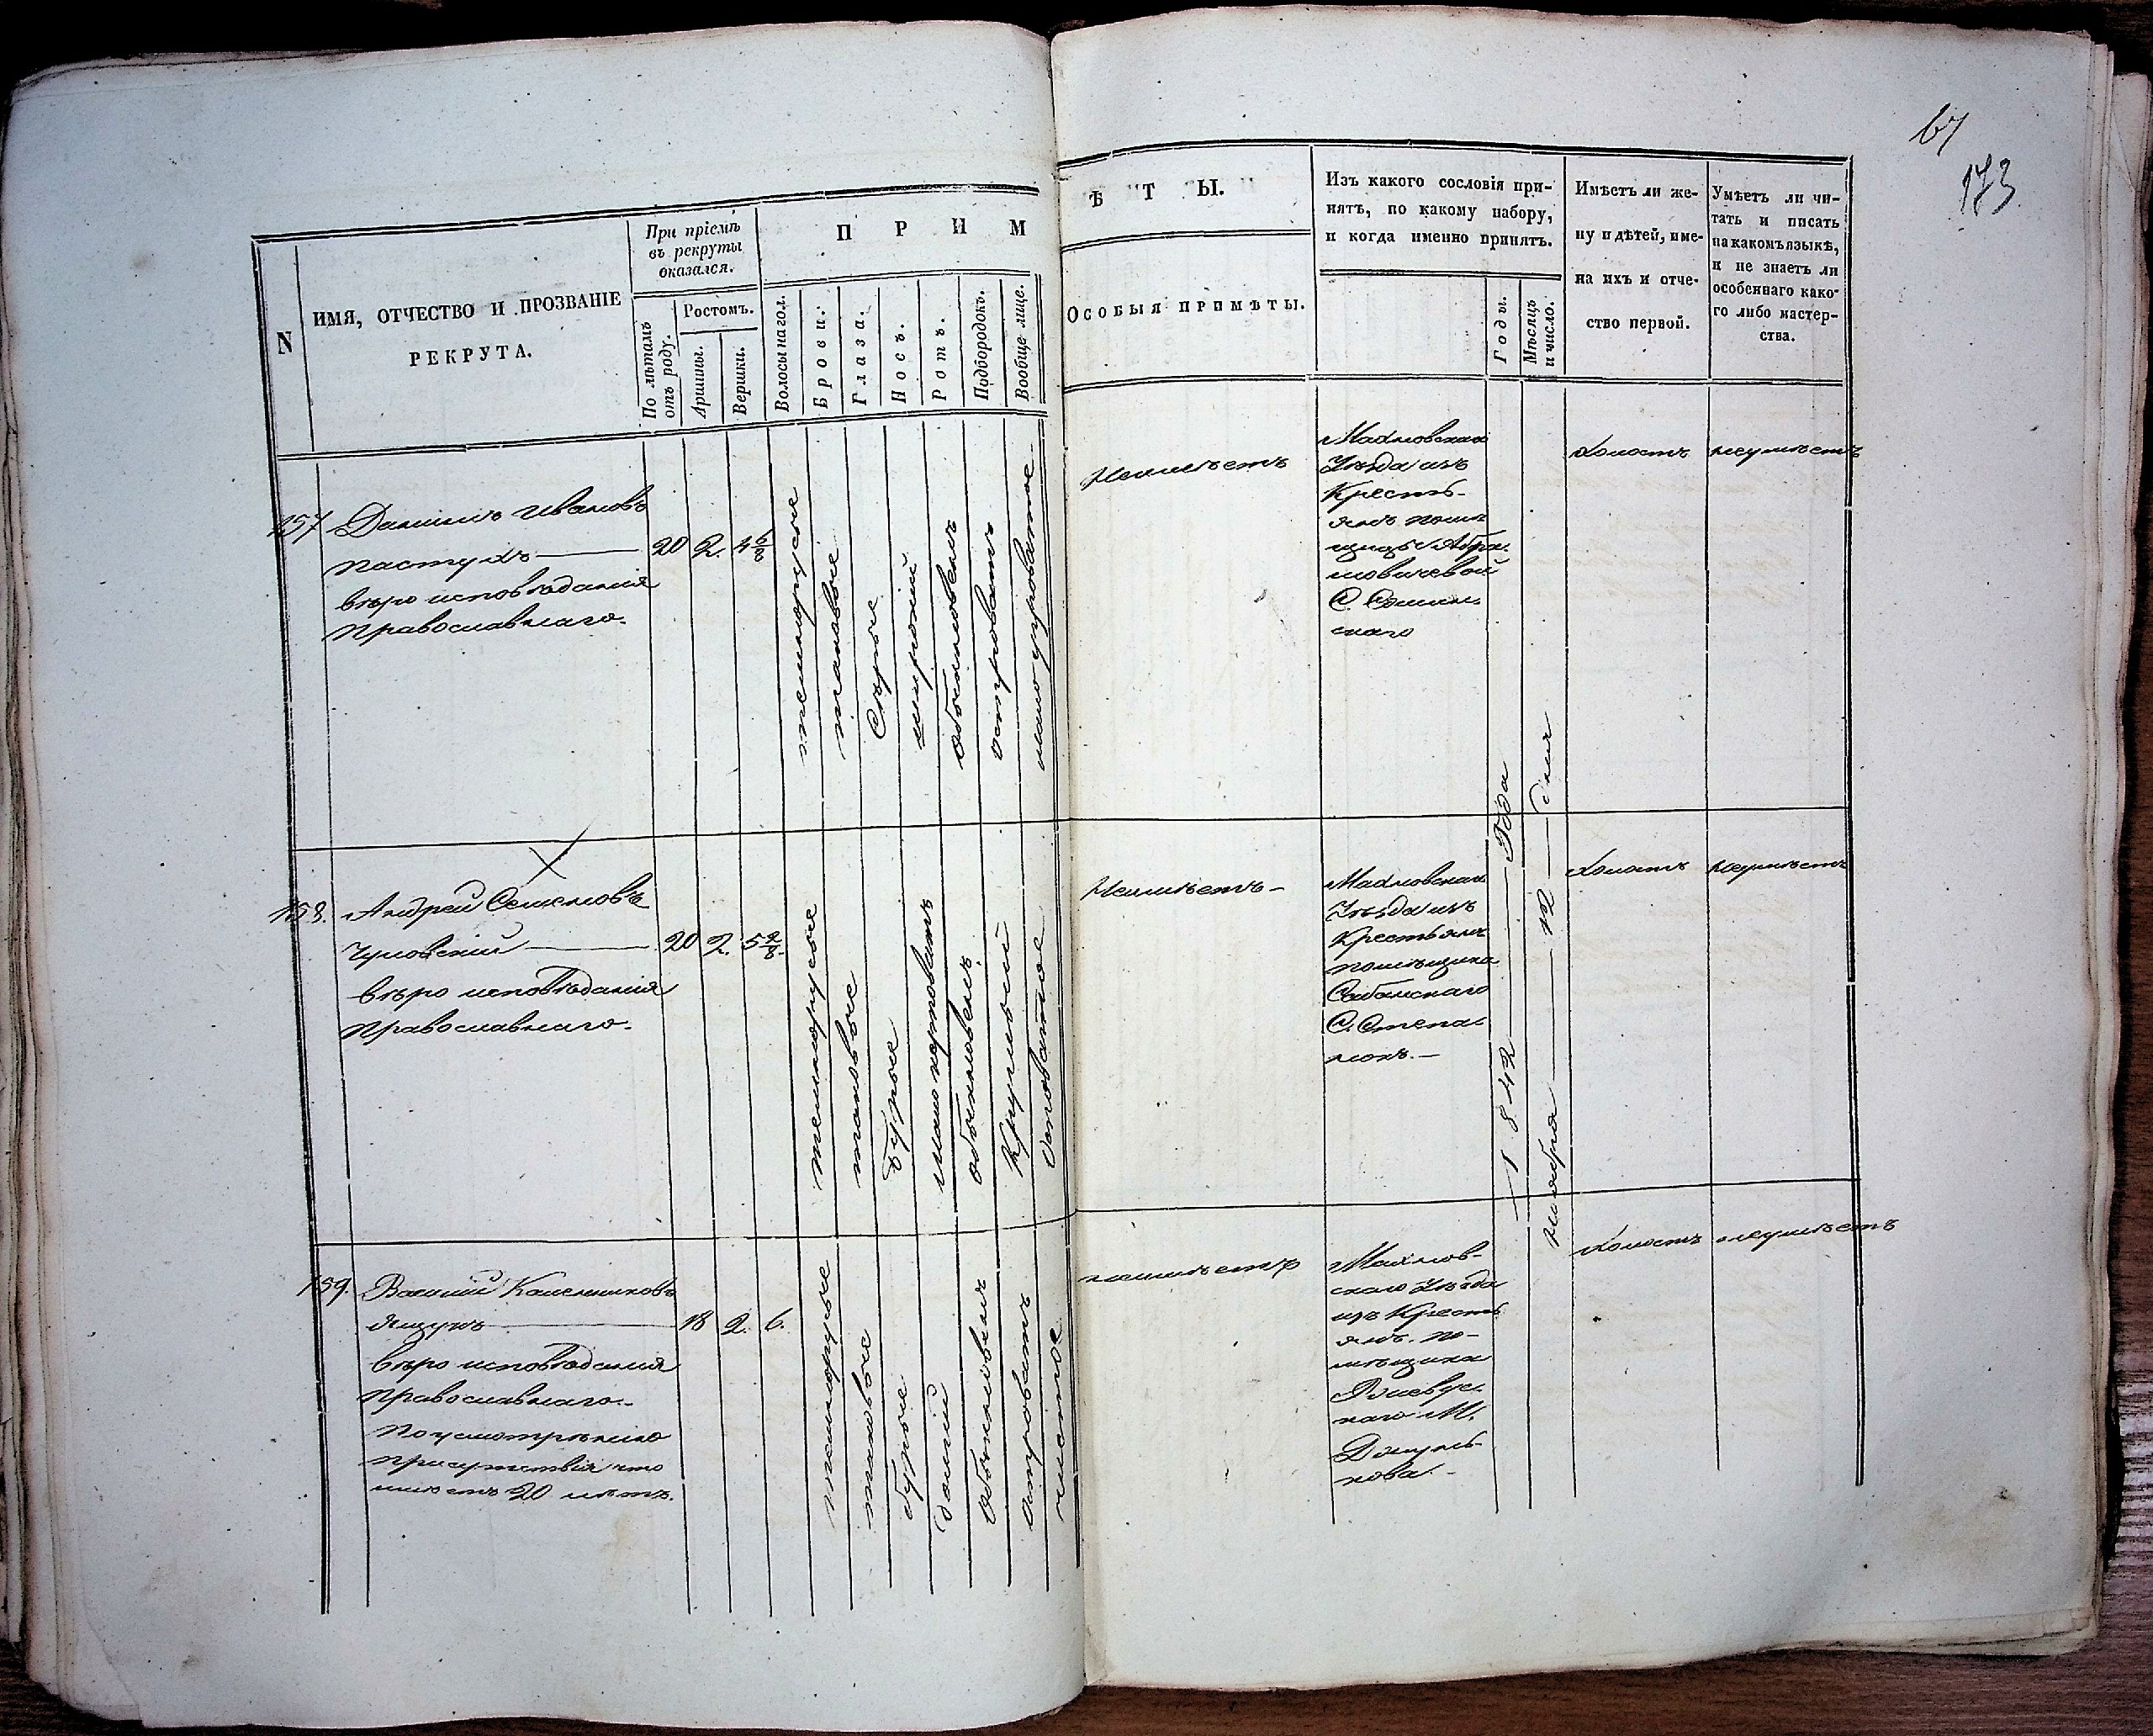 67
173
N
ИМЯ, ОТЧЕСТВО И ПРОЗВАНІЕ
РЕКРУТА.
При пріемѣ
въ рекруты
оказался.
По лѣтамъ
отъ роду.
Ростомъ.
Аршины.
Вершки.
П Р И М
Волосы на гол.
Брови:
Глаза.
Носъ.
Ротъ.
Подбородокъ.
Вообще лице.
Ѣ Т Ы.
ОСОБЫЯ ПРИМѢТЫ.
Изъ какого сословія при-
нятъ, по какому набору,
и когда именно принятъ.
Годы.
Мѣсяцъ
и число.
Имѣетъ ли же-
ну и дѣтей, име-
на ихъ и отче-
ство первой.
Умѣетъ ли чи-
тать и писать
на какомъ языкѣ,
и не знаетъ ли
особеннаго како-
го либо мастер-
ства.
157
Данило Ивановъ
пастухъ
вѣро исповѣданія
Православнаго.
20
2.
4 6/8
темнорусые
таковые
Сѣрые
широкій
обыкновенъ
островатъ
Неимѣетъ
Махновскаго
Уѣзда изъ
Кресть-
янъ поми
щицы
холостъ
неумѣетъ
158.
Андрей Семеновъ
вѣро исповѣданія
Православнаго.
20
2.
5 2/8.
темнорусые
таковые
бурые
обыкновенъ
Круглый
Неимѣетъ -
Махновскаго
Уѣзда изъ
Крестьянъ
помѣщика
Собанскаго
С. Степа-
нокъ. -
1842 Года
Ноября 12 дня
холостъ
неумѣетъ
159.
Василій
вѣро исповѣданія
Православнаго.
По усмотрѣнію
присутствія что
имѣетъ 20 лѣтъ.
18
2.
6.
темнорусые
таковые
бурые
долгій
Обыкновенъ
островатъ
чистое
неимѣетъ
Махнов-
скаго Уѣзда
изъ Кресть
янъ. по-
мѣщика
Ржевус-
каго М.
холостъ
неумѣетъ